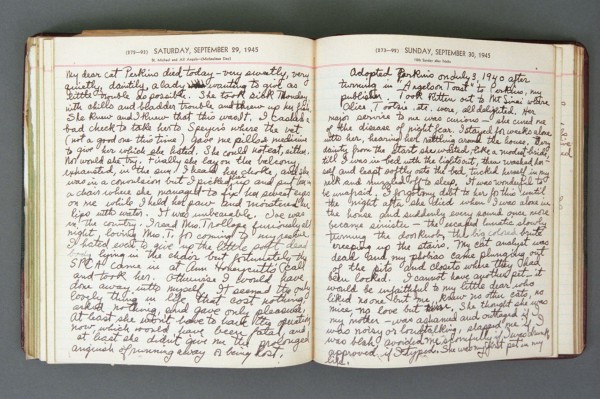 (272-93) SATURDAY, SEPTEMBER 29, 1945
St. Michael and All Angels—(Michaelmas Day)
My dear cat Perkins died today – very sweetly, very
quietly, daintily, a lady wanting to give as
little trouble as possible. She took sick Monday
with chills and bladder trouble and threw up her food.
She knew and I knew that this was it. I cashed a
bad check to take her to Speyers where the vet
(not a good one this time) gave me pills & medicine
to give her which she hated. She could not eat, either.
Nor would she try. Finally she lay on the balcony
exhausted, in the sun. I heard her choke, and she
was in a convulsion but I picked her up and put her in
a chair where she managed to fix her sweet eyes
on me while I held her paw and moistened her
lips with water. It was unbearable. Joe was
in the country. I read Mrs. Trollope furiously all
night, loving Mrs. T. for coming to my rescue.
I hated to give up the little soft dead
body lying in the chair but fortunately the
S.P.C.A. came in at Ann Honeycutt's call
and took her. Otherwise I would have
done away with myself. It seemed the only
lovely thing in life that cost nothing
asked nothing, and gave only pleasure.
At least she won't have to have the operation
now, which would have been fatal and
at least she didn't give me the prolonged
anguish of running away or being lost.
(273-92) SUNDAY, SEPTEMBER 30, 1945
18th Sunday after Trinity
Adopted Perkins on July 3, 1940 after
turning in "Angels on Toast" to Perkins, my
publisher. Took kitten out to Mt. Sinai where
Alice, Tootsie etc. were, all delighted. Her
major service to me was curious – she cured me
of the disease of night fear. I stayed for weeks alone
with her, hearing her rattling around the house. Very
dainty from the start she waited, like a modest bride,
till I was in bed with the lights out, then washed her-
self and leapt softly onto the bed, tucked herself in my
neck and snuggled off to sleep. It was wonderful to
be unafraid. So grateful I felt to her for this until
the night after she died when I was alone in
the house and suddenly every sound once more
became sinister – the sneaked kinetic slowly
turning the doorknob, the big colored brute
creeping up the stairs. My cat analyst was
dead and my phobias came plunging out
of the pits and closets where they had
been locked. I cannot have another pet – it
would be unfaithful to my little dear who
liked no one but me, knew no other cats, no
mice, no love but mine. She thought she was
my mother – was ashamed and outraged if I
was noisy or loud talking, slapped me if I
was blah, avoided me scornfully if I was drunk,
approved if I typed. She was my first pet in my
life.